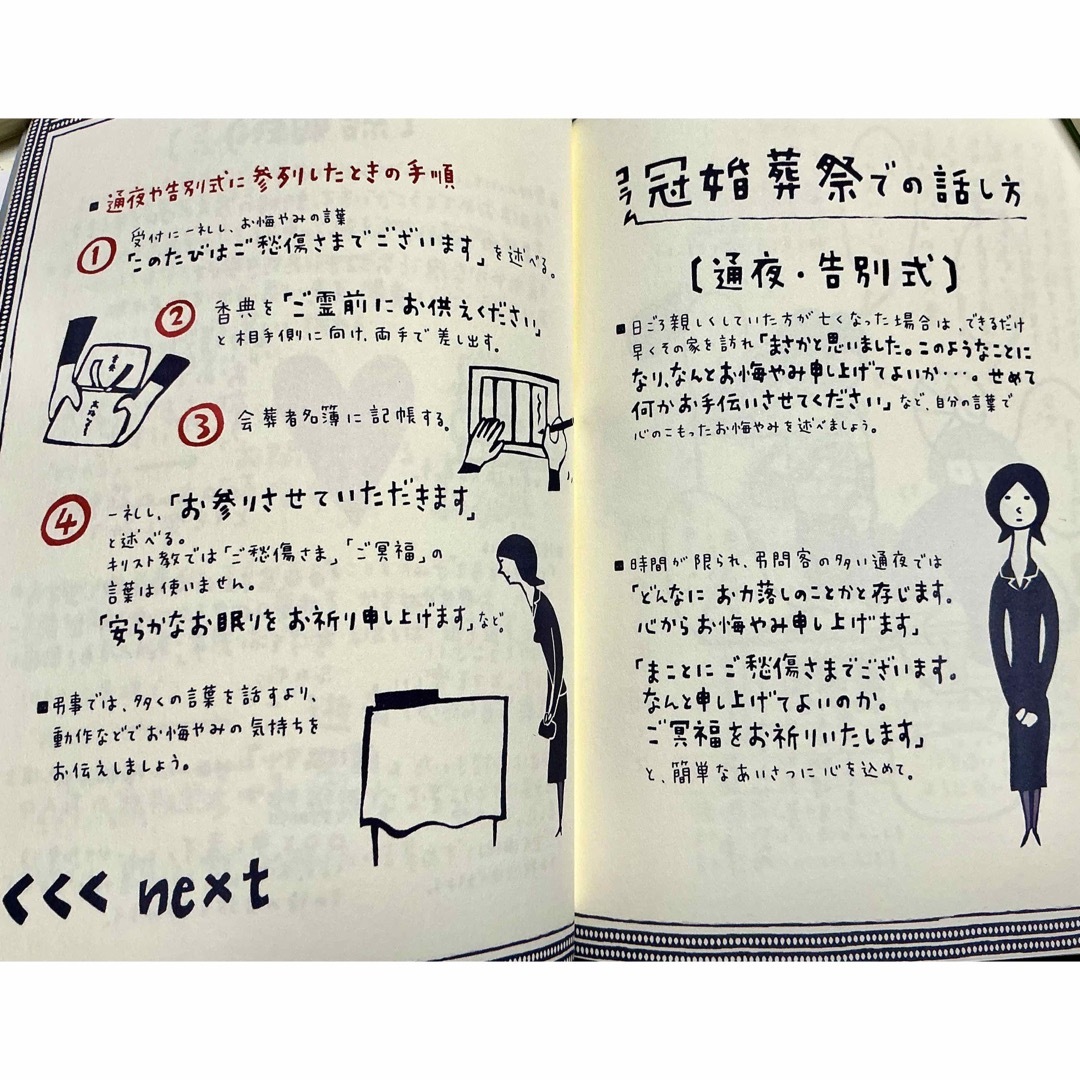 コラム 冠婚葬祭での話し方
【通夜・告別式】
■日ごろ親しくしていた方が亡くなった場合は、できるだけ
早くその家を訪れ「まさかと思いました。このようなことに
なり、なんとお悔やみ申し上げてよいか・・・。せめて
何かお手伝いさせてください」など、自分の言葉で
心のこもったお悔やみを述べましょう。
■時間が限られ、弔問客の多い通夜では
「どんなにお力落しのことかと存じます。
心からお悔やみ申し上げます」
「まことにご愁傷さまでございます。
なんと申し上げてよいのか。
ご冥福をお祈りいたします」
と、簡単なあいさつに心を込めて。
■通夜や告別式に参列したときの手順
① 受付に一礼し、お悔やみの言葉
「このたびはご愁傷さまでございます」を述べる。
② 香典を「ご霊前にお供えください」
と相手側に向け、両手で差し出す。
③ 会葬者名簿に記帳する。
④ 一礼し、「お参りさせていただきます」
と述べる。
キリスト教では「ご愁傷さま」「ご冥福」の
言葉は使いません。
「安らかなお眠りをお祈り申し上げます」など。
■弔事では、多くの言葉を話すより、
動作などでお悔やみの気持ちを
お伝えしましょう。
<<< next